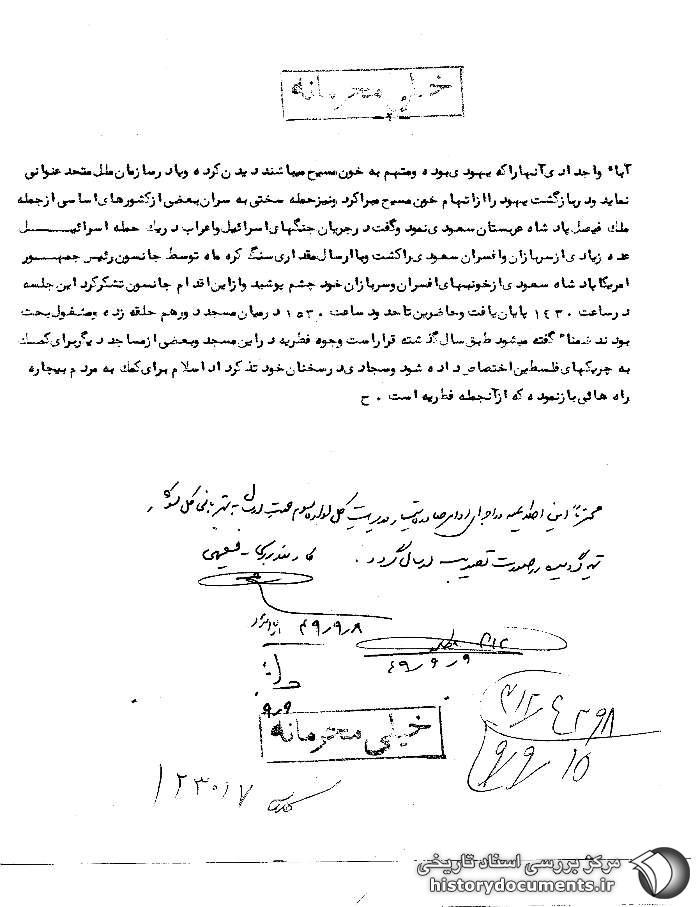 خیلی محرمانه
آباء واجدادی آنهاراکه یهودی بوده ومتهم به خون مسیح میباشند دیدن کرده وباد رسازمان ملل متحد عنوانی
نماید ودربازگشت یهود را ازاتهام خون مسیح مبراکرد ونیزحمله سختی به سران بعضی ازکشورهای اساسی ازجمله
ملك فیصل پاد شاه عربستان سعودی نمود وگفت درجریان جنگهای اسرائیل واعراب دریك حمله اسرائیل
عده زیادی ازسربازان وافسران سعودی راکشت وباارسال مقداری سنگ کره ماه توسط جانسون رئیس جمهور
امریکاپاد شاه سعودی ازخونبهای افسران وسربازان خود چشم پوشید وازاین اقدام جانسون تشکرکرد این جلسه
درساعت ١٤٣٠ پایان یافت وحاضرین تاحدود ساعت ١٥٣٠ درمیان مسجد دورهم حلقه زده ومشغول بحث
بودند ضمنا" گفته میشود طبق سال گذشته قراراست وجوه فطریه دراین مسجد وبعضی ازمساجد دیگربرای کمك
به چریکهای فلسطین اختصاص داده شود وسجادی درسخنان خود تذکرداد اسلام برای کمك به مردم بیچاره
راه هائی بازنموده که ازآنجمله فطریه است . ح
محترماً این اطلاعیه در اجرای اوامر صادره مدیریت کل اداره سوم جهت ارسال به شهربانی کل کشور
تهیه گردیده در صورت تصویب ارسال گردد .
کارمند بررسی - فقیهی
٤٩/٩/٨
٣١٢
٤٩/٩/٩
٩/٩
خیلی محرمانه
٣١٢/٤٢٩٨
٩/٩/١٥
١٢٣٠١٧
مرکز بررسی اسناد تاریخی
historydocuments.ir